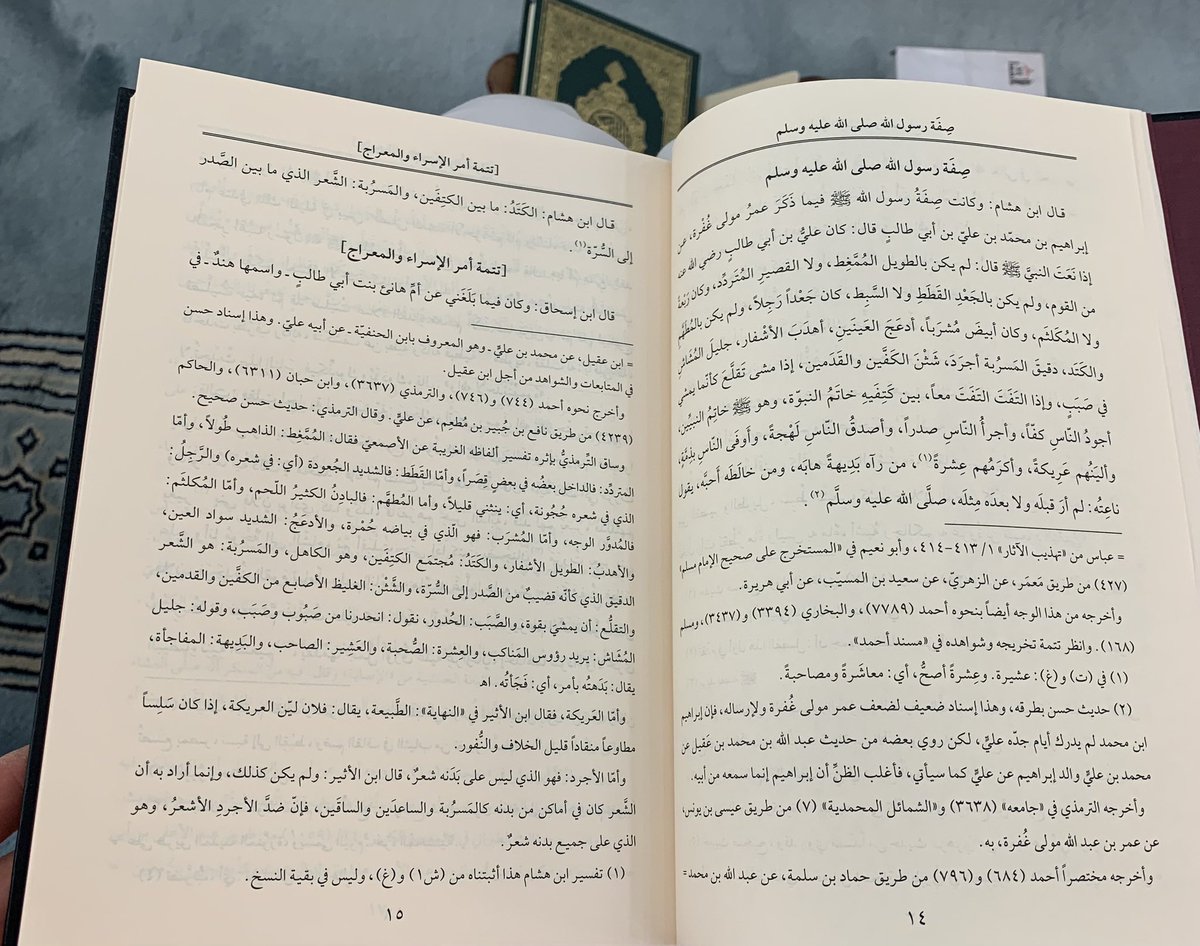 صِفَة رسول الله صلى الله عليه وسلم
صِفَة رسول الله صلى الله عليه وسلم
قال ابن هشام: وكانت صِفَةُ رسول الله ﷺ فيما ذَكَرَ عمرُ مولى غُفْرة، عن
إبراهيم بن محمّد بن عليّ بن أبي طالب قال: كان عليُّ بن أبي طالبٍ رضي الله عنه
إذا نَعَتَ النبيَّ ﷺ قال: لم يكن بالطويل المُمَّغِط، ولا القصيرِ المُتَردِّد، وكان رَبْعةً
من القوم، ولم يكن بالجَعْدِ القَطَطِ ولا السَّبِط، كان جَعْداً رَجِلاً، ولم يكن بالمُطَهَّم
ولا المُكَلثَم، وكان أبيضَ مُشرَباً، أدعَجَ العَينَينِ، أهدَبَ الأشْفار، جليلَ المُشَاشِ
والكَتَد، دقيقَ المَسرُبة أجرَدَ، شَثْنَ الكَفَّين والقَدَمين، إذا مشى تَقلَّعَ كأنّما يمشي
في صَبَبٍ، وإذا التَفَتَ التَفَتَ معاً، بين كَتِفَيهِ خاتَمُ النبوّة، وهو ﷺ خاتِمُ النبيين،
أجودُ النّاسِ كفّاً، وأجرأُ النّاسِ صدراً، وأصدقُ النّاس لَهْجةً، وأَوفَى النّاسِ بذِمّةٍ،
وأليَنُهم عَرِيكةً، وأكرَمُهم عِشرةً(١)، من رآه بَدِيهةً هابَه، ومن خالَطَه أحبَّه، يقول
ناعِتُه: لم أرَ قبلَه ولا بعدَه مِثلَه، صلَّى الله عليه وسلَّم(٢).
= عباس من «تهذيب الآثار» ١/ ٤١٣-٤١٤، وأبو نعيم في «المستخرج على صحيح الإمام مسلم»
(٤٢٧) من طريق مَعمَر، عن الزهريّ، عن سعيد بن المسيّب، عن أبي هريرة.
وأخرجه من هذا الوجه أيضاً بنحوه أحمد (٧٧٨٩)، والبخاري (٣٣٩٤) و(٣٤٣٧)، ومسلم
(١٦٨). وانظر تتمة تخريجه وشواهده في «مسند أحمد».
(١) في (ت) و(غ): عشيرة. وعِشرةً أصحُّ، أي: معاشَرةً ومصاحبةً.
(٢) حديث حسن بطرقه، وهذا إسناد ضعيف لضعف عمر مولى غُفرة ولإرساله، فإن إبراهيم
ابن محمد لم يدرك أيام جدّه عليّ، لكن روي بعضه من حديث عبد الله بن محمد بن عَقيل عن
محمد بن عليٍّ والد إبراهيم عن عليٍّ كما سيأتي، فأغلب الظنِّ أن إبراهيم إنما سمعه من أبيه.
وأخرجه الترمذي في «جامعه» (٣٦٣٨) و«الشمائل المحمدية» (٧) من طريق عيسى بن يونس،
عن عمر بن عبد الله مولى غُفرة، به.
وأخرجه مختصراً أحمد (٦٨٤) و(٧٩٦) من طريق حماد بن سلمة، عن عبد الله بن محمد =
١٤
[تتمة أمر الإسراء والمعراج]
قال ابن هشام: الكَتَدُ: ما بين الكتِفَين، والمَسرُبة: الشَّعر الذي ما بين الصَّدر
إلى السُّرّة(١).
[تتمة أمر الإسراء والمعراج]
قال ابن إسحاق: وكان فيما بَلَغَني عن أمِّ هانئ بنت أبي طالبٍ ـ واسمها هندٌ ـ في
= ابن عقيل، عن محمد بن عليٍّ ـ وهو المعروف بابن الحنفيّة ـ عن أبيه عليّ. وهذا إسناد حسن
في المتابعات والشواهد من أجل ابن عقيل.
وأخرج نحوه أحمد (٧٤٤) و(٧٤٦)، والترمذي (٣٦٣٧)، وابن حبان (٦٣١١)، والحاكم
(٤٢٣٩) من طريق نافع بن جُبير بن مُطعِم، عن عليٍّ. وقال الترمذي: حديث حسن صحيح.
وساق التِّرمذيُّ بإثره تفسير ألفاظه الغريبة عن الأصمعيّ فقال: المُمَّغِط: الذاهب طُولاً، وأمّا
المتردِّد: فالداخل بعضُه في بعضٍ قِصَراً، وأمّا القَطَط: فالشديد الجُعودة (أي: في شعره) والرَّجِلُ:
الذي في شعره حُجُونة، أي: ينثني قليلاً، وأما المُطهَّم: فالبادِنُ الكثيرُ اللَّحم، وأمّا المكلثم:
فالمُدوَّر الوجه، وأمّا المُشرَب: فهو الّذي في بياضه حُمْرة، والأدعَجُ: الشديد سواد العين،
والأهدبُ: الطويل الأشفار، والكَتَدُ: مُجتمَع الكتِفَين، وهو الكاهل، والمَسرُبة: هو الشَّعر
الدقيق الذي كأنّه قضيبٌ من الصَّدر إلى السُّرّة، والشَّثْن: الغليظ الأصابع من الكفَّين والقدمين،
والتقلُّع: أن يمشيَ بقوة، والصَّبَب: الحُدور، نقول: انحدرنا من صَبُوب وصَبَب، وقوله: جليل
المُشَاش: يريد رؤوس المَناكب، والعِشرة: الصُّحبة، والعَشِير: الصاحب، والبَدِيهة: المفاجأة،
يقال: بَدَهتُه بأمر، أي: فَجَأتُه. اهـ
وأمّا العَرِيكة، فقال ابن الأثير في «النهاية»: الطَّبيعة، يقال: فلان ليّن العريكة، إذا كان سَلِساً
مطاوعاً منقاداً قليل الخلاف والنُّفور.
وأمّا الأجرد: فهو الذي ليس على بَدَنه شعرٌ، قال ابن الأثير: ولم يكن كذلك، وإنما أراد به أن
الشَّعر كان في أماكن من بدنه كالمَسرُبة والساعدَين والساقَين، فإنّ ضدَّ الأجردِ الأشعرُ، وهو
الذي على جميع بدنه شعرٌ.
(١) تفسير ابن هشام هذا أثبتناه من (ش١) و(غ)، وليس في بقية النسخ.
١٥